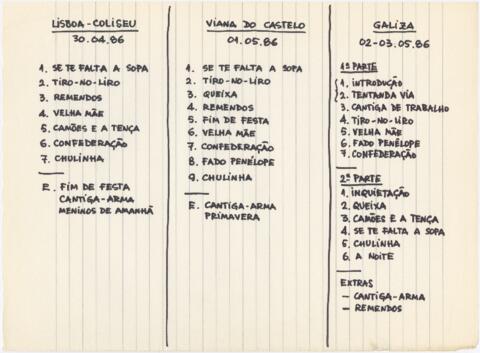 LISBOA-COLISEU
30.04.86
1. SE TE FALTA A SOPA
2. TIRO-NO-LIRO
3. REMENDOS
4. VELHA MÃE
5. CAMÕES E A TENÇA
6. CONFEDERAÇÃO
7. CHULINHA
E. FIM DE FESTA
CANTIGA-ARMA
MENINOS DE AMANHÃ
VIANA DO CASTELO
01.05.86
1. SE TE FALTA A SOPA
2. TIRO-NO-LIRO
3. QUEIXA
4. REMENDOS
5. FIM DE FESTA
6. VELHA MÃE
7. CONFEDERAÇÃO
8. FADO PENÉLOPE
9. CHULINHA
E. CANTIGA-ARMA
PRIMAVERA
GALIZA
02-03.05.86
1ª PARTE
1. INTRODUÇÃO
2. TENTANDA VIA
3. CANTIGA DE TRABALHO
4. TIRO-NO-LIRO
5. VELHA MÃE
6. FADO PENÉLOPE
7. CONFEDERAÇÃO
2ª PARTE
1. INQUIETAÇÃO
2. QUEIXA
3. CAMÕES E A TENÇA
4. SE TE FALTA A SOPA
5. CHULINHA
6. A NOITE
EXTRAS
- CANTIGA-ARMA
- REMENDOS